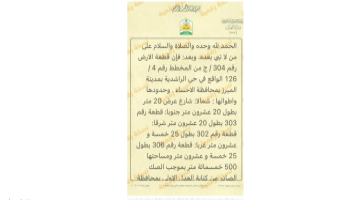 الحمد لله وحده والصلاة والسلام على
من لا نبي بعده، وبعد: فإن قطعة الارض
رقم 304 / ج من المخطط رقم 4 /
126 الواقع في حي الراشدية بمدينة
المبرز بمحافظة الاحساء . وحدودها
واطوالها : شمالا: شارع عرض 20 متر
بطول 20 عشرون متر جنوبا: قطعة رقم
303 بطول 20 عشرون متر شرقا:
قطعة رقم 302 بطول 25 خمسة و
عشرون متر غربا: قطعة رقم 306 بطول
25 خمسة و عشرون متر ومساحتها
500 خمسمائة متر بموجب الصك
الصادر من كتابة العدل الاولى بمحافظة